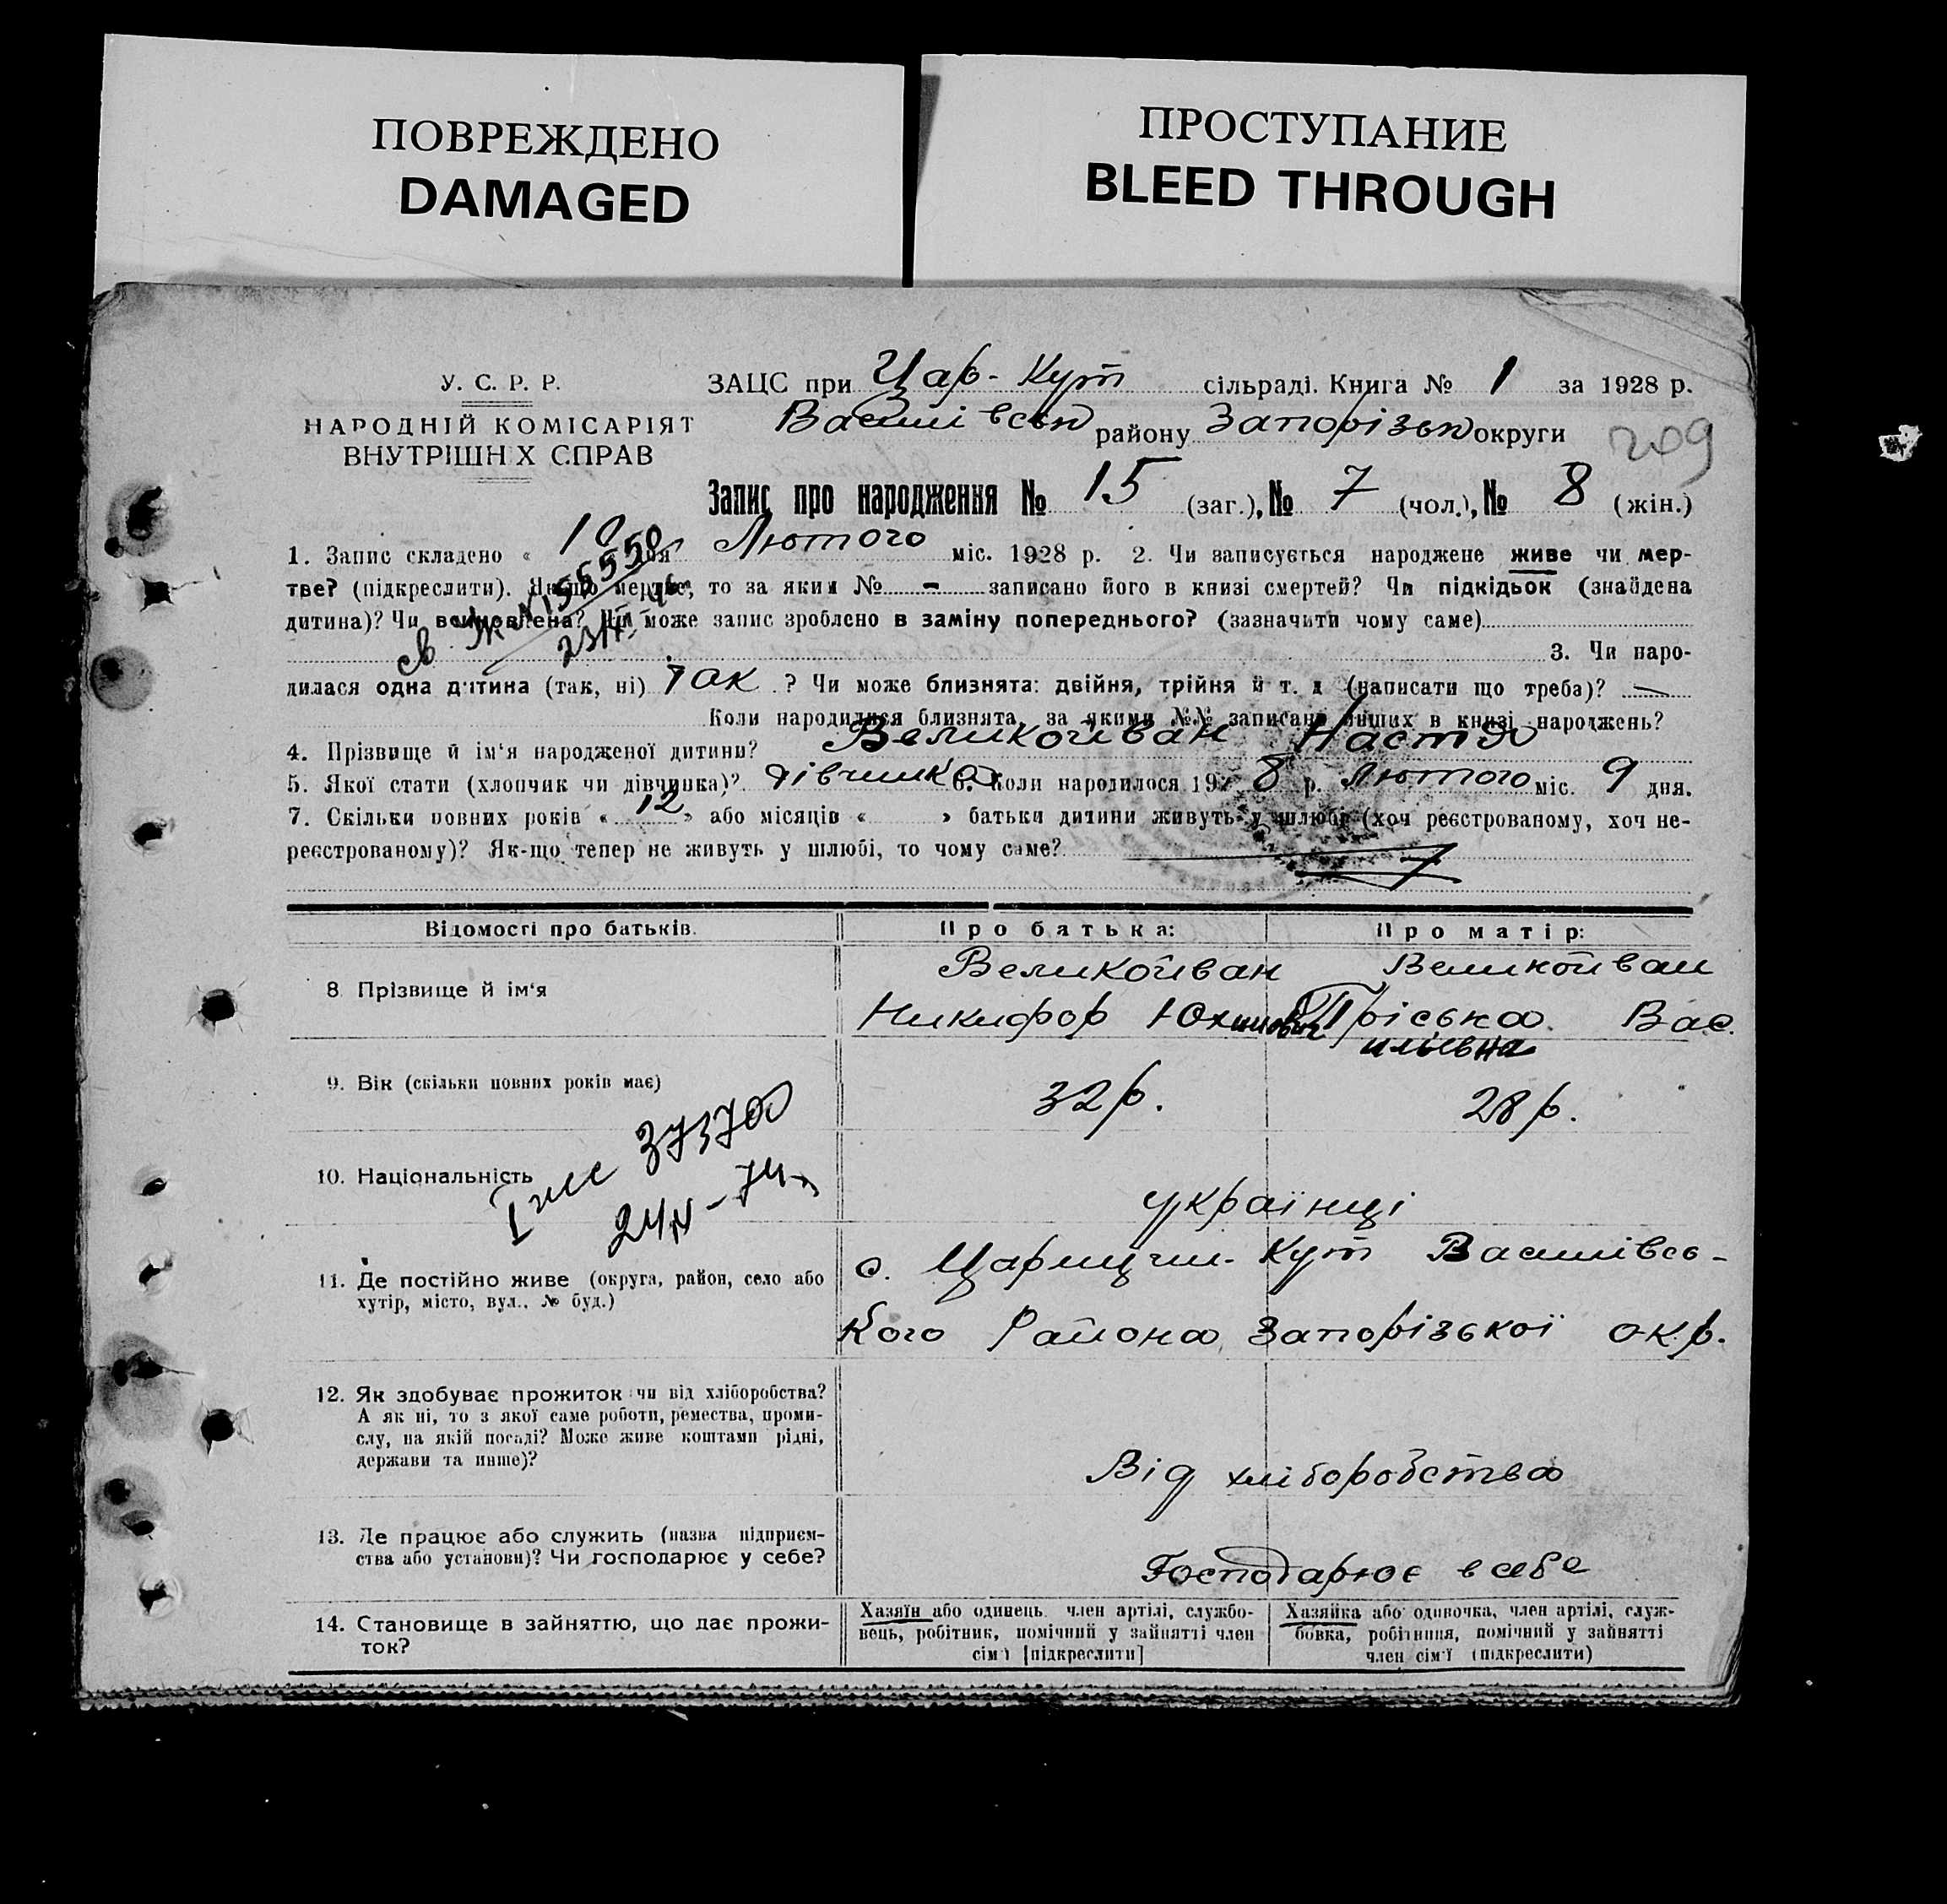 ПОВРЕЖДЕНО
DAMAGED
ПРОСТУПАНИЕ
BLEED THROUGH
У. С. Р. Р.
НАРОДНІЙ КОМІСАРІЯТ
ВНУТРІШН Х СПРАВ
ЗАЦС при Цар-Кут сільраді. Книга № 1 за 1928 р.
Василівськ району Запорізьк округи
209
Запис про народження № 15 (заг.), № 7 (чол.), № 8 (жін.)
1. Запис складено « 10 дня Лютого міс. 1928 р. 2. Чи записується народжене живе чи мер-
тве? (підкреслити). Як-що мертве, то за яким № - записано його в книзі смертей? Чи підкідьок (знайдена
дитина)? Чи всиновлена? Чи може запис зроблено в заміну попереднього? (зазначити чому саме)
3. Чи наро-
дилася одна дитина (так, ні) Так ? Чи може близнята: двійня, трійня й т. д (написати що треба)? —
Коли народилися близнята, за якими №№ записано инших в книзі народжень?
4. Прізвище й ім'я народженої дитини? Великойван Настя
5. Якої стати (хлопчик чи дівчинка)? дівчинка 6. Коли народилося 1928 р. Лютого міс. 9 дня.
7. Скільки повних років « 12 » або місяців « » батьки дитини живуть у шлюбі (хоч реєстрованому, хоч не-
реєстрованому)? Як-що тепер не живуть у шлюбі, то чому саме?
Відомості про батьків. Про батька: Про матір:
8. Прізвище й ім'я
Великойван Великойван
Никифор Юхимович Пріська Вас.
ильевна
9. Вік (скільки повних років має) 32 р. 28 р.
373700
10. Національність українці
11. Де постійно живе (округа, район, село або
хутір, місто, вул., № буд.)
с. Царицин-Кут Василівсь-
кого Района Запорізької окр.
12. Як здобуває прожиток чи від хліборобства?
А як ні, то з якої саме роботи, ремества, проми-
слу, на якій посаді? Може живе коштами рідні,
держави та инше)?
Від хліборобства
13. Де працює або служить (назва підприєм-
ства або установи)? Чи господарює у себе?
Господарює в себе
14. Становище в зайняттю, що дає прожи-
ток?
Хазяїн або одинець член артілі, службо-
вець, робітник, помічний у зайнятті член
сім'ї [підкреслити]
Хазяйка або одиночка, член артілі, служ-
бовка, робітниця, помічний у зайнятті
член сім'ї (підкреслити)